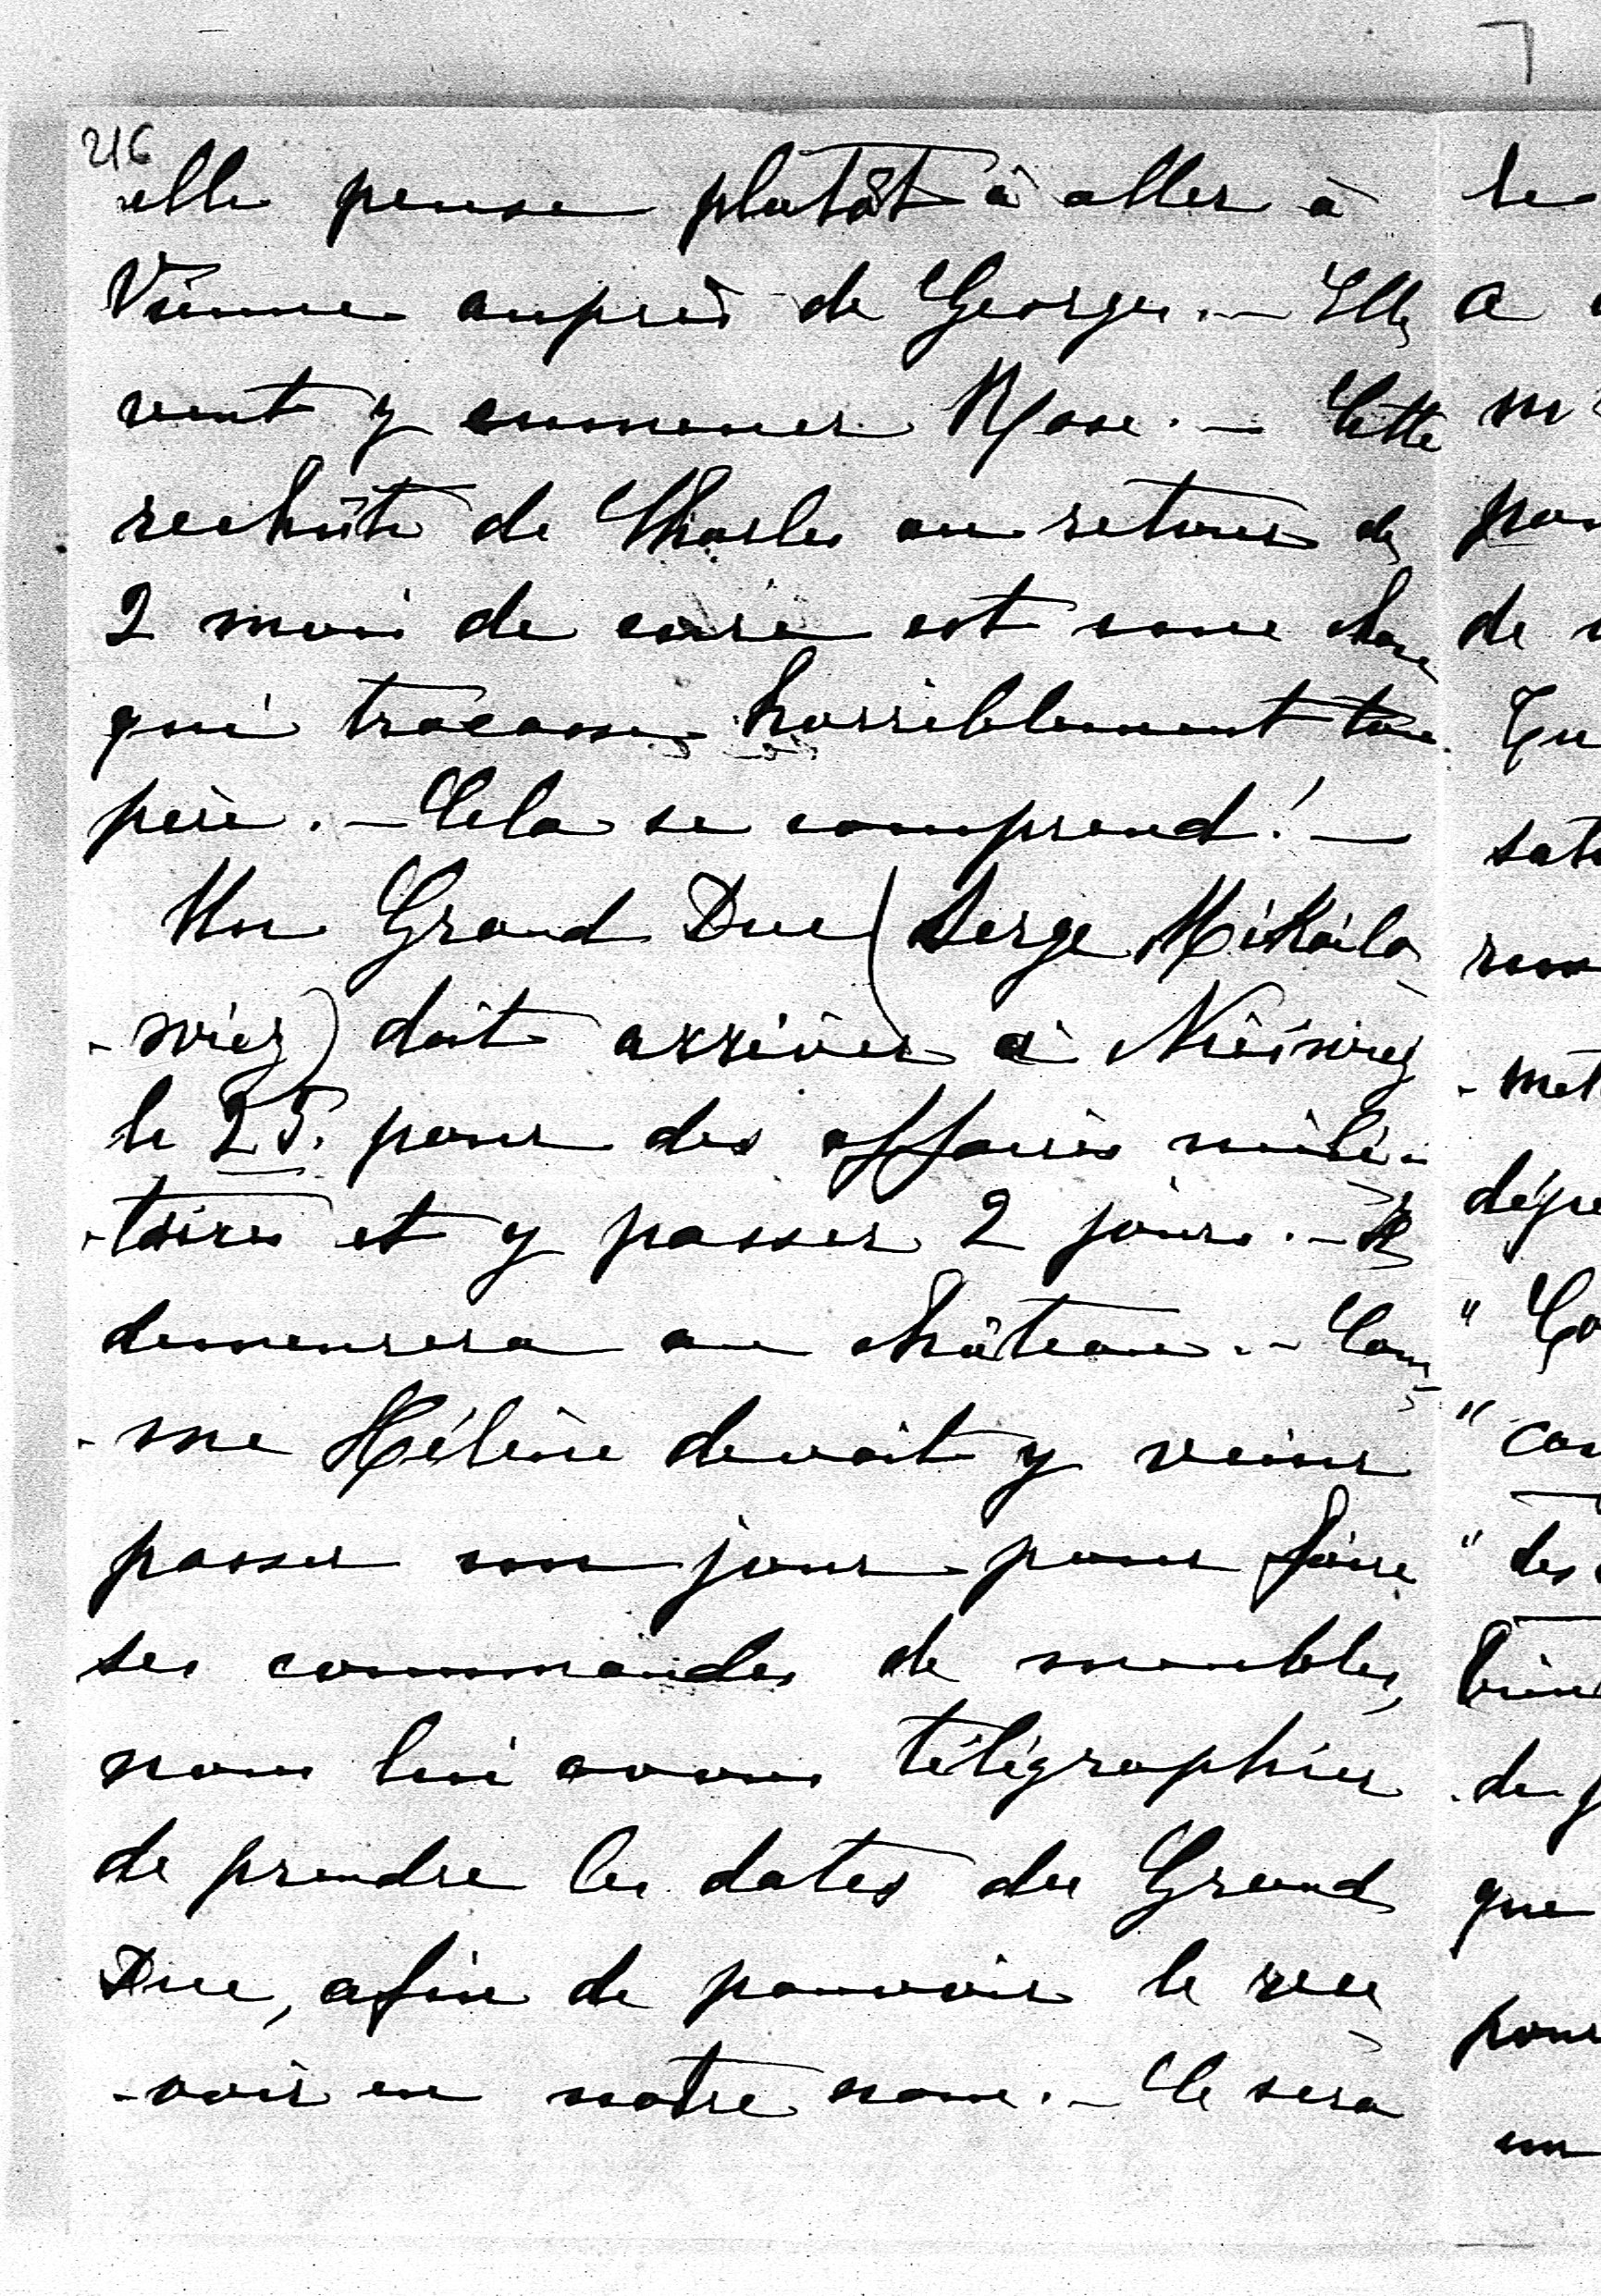 216
elle pense plutôt à aller à
Vienne auprès de Georges. — Elle
veut y emmener Rose. — Cette
rechûte de Charles au retour de
2 mois de cure est une chose
qui tracasse horriblement ton
père. — Cela se comprend! —
Un Grand Duc (Serge Mikaïlo
-wicz) doit arriver à Nieswiez
le 25. pour des affaires mili-
-taires et y passer 2 jours. — Il
demeurera au château. — Com
-me Hélène devait y venir
passer un jour pour faire
ses commandes de meubles,
nous lui avons télégraphier
de prendre les dates du Grand
Duc, afin de pouvoir le rece
-voir en notre nom. — Ce sera
a
de
sat
-met
"
"
" des
de
que
pour
un